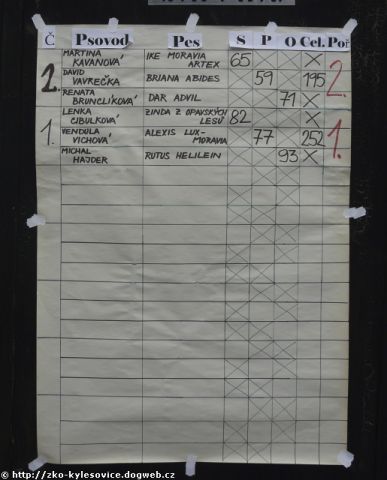 Č Psovod Pes S P O Cel. Poř
2. MARTINA KAVANOVÁ IKE MORAVIA ARTEX 65 X
DAVID VAVREČKA BRIANA ABIDES 59 195 2.
RENATA BRUNCLÍKOVÁ DAR ADVIL 71 X
1. LENKA CIBULKOVÁ ZINDA Z OPAVSKÝCH LESŮ 82 X
VENDULA VICHOVÁ ALEXIS LUX-MORAVIA 77 252 1.
MICHAL HAJDER RUTUS HELILEIN 93 X
© http://zko-kylesovice.dogweb.cz